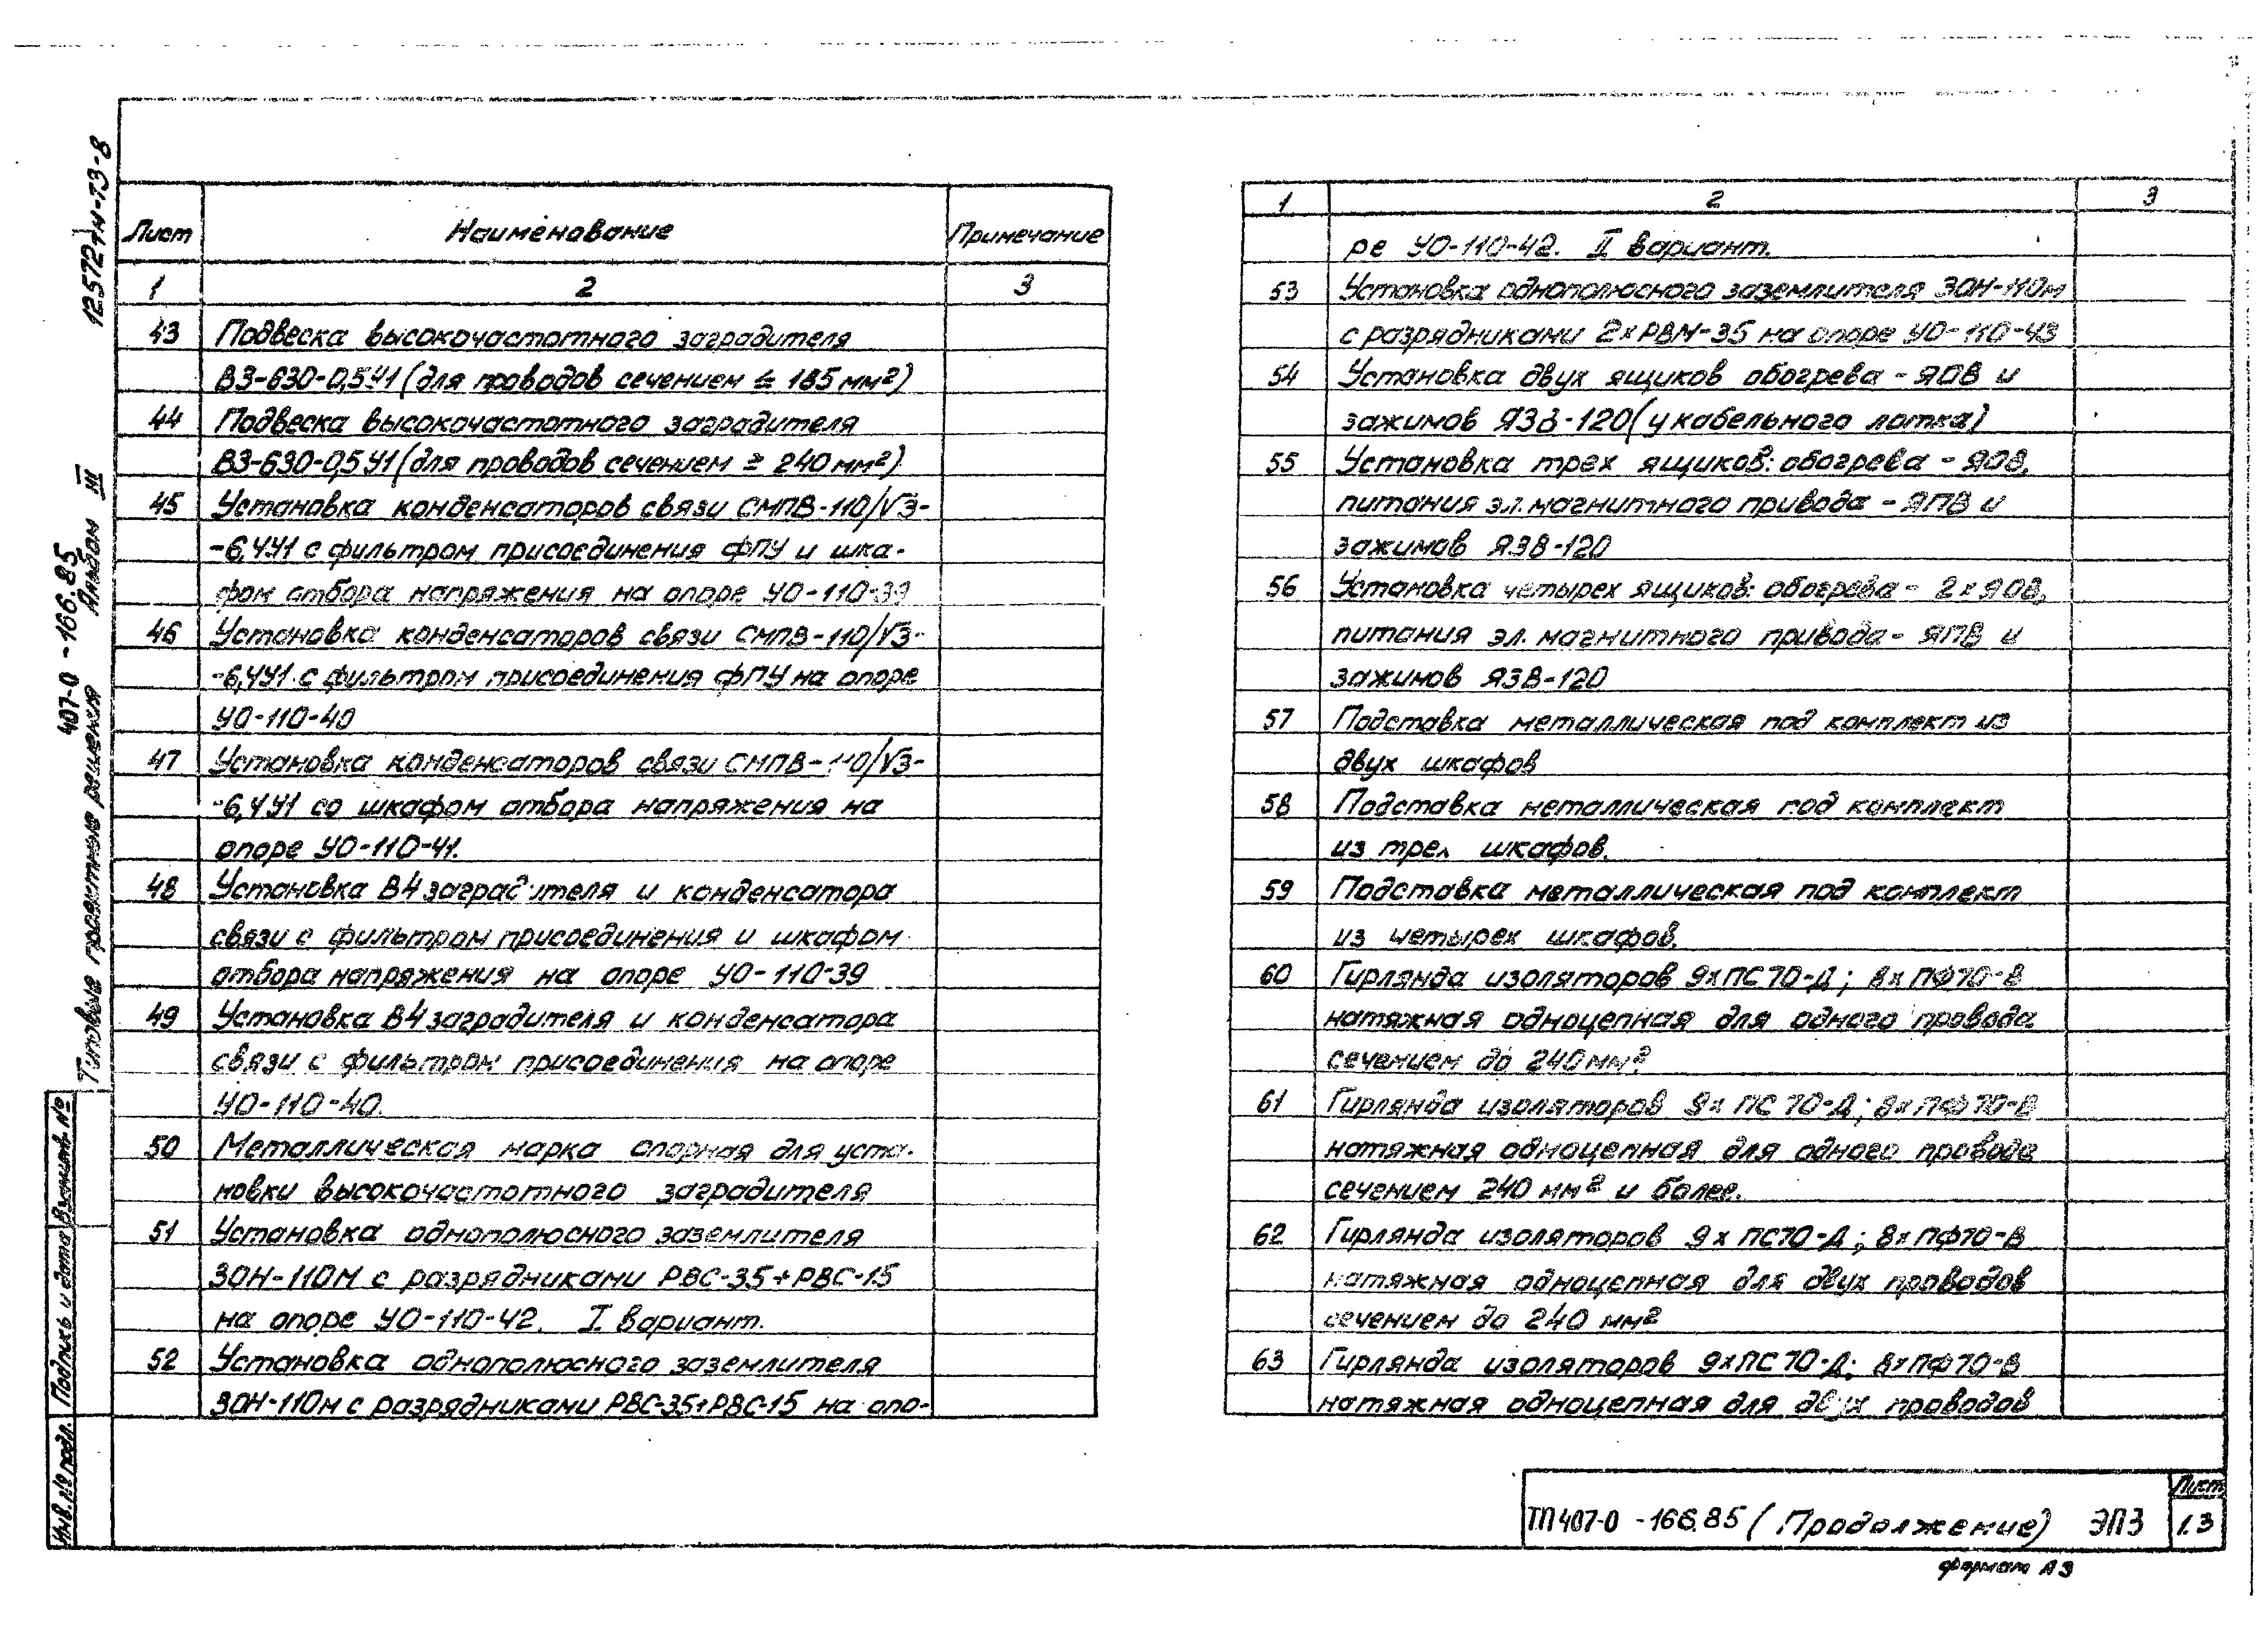 12572тм-т3-8
407-0-166.85
Типовые проектные решения Альбом III
Взамен инв.№
Подпись и дата
Инв.№подл.
Лист Наименование Примечание
1 2 3
43 Подвеска высокочастотного заградителя
ВЗ-630-0,5У1 (для проводов сечением ≤ 185 мм²)
44 Подвеска высокочастотного заградителя
ВЗ-630-0,5У1 (для проводов сечением ≥ 240 мм²)
45 Установка конденсаторов связи СМПВ-110/√3-
-6,4У1 с фильтром присоединения ФПУ и шка-
фом отбора напряжения на опоре УО-110-39
46 Установка конденсаторов связи СМПВ-110/√3-
-6,4У1 с фильтром присоединения ФПУ на опоре
УО-110-40
47 Установка конденсаторов связи СМПВ-110/√3-
-6,4У1 со шкафом отбора напряжения на
опоре УО-110-41.
48 Установка ВЧ заградителя и конденсатора
связи с фильтром присоединения и шкафом
отбора напряжения на опоре УО-110-39
49 Установка ВЧ заградителя и конденсатора
связи с фильтром присоединения на опоре
УО-110-40.
50 Металлическая марка опорная для уста-
новки высокочастотного заградителя
51 Установка однополюсного заземлителя
ЗОН-110М с разрядниками РВС-35+РВС-15
на опоре УО-110-42. I вариант.
52 Установка однополюсного заземлителя
ЗОН-110м с разрядниками РВС-35+РВС-15 на опо-
1 2 3
ре УО-110-42. II вариант.
53 Установка однополюсного заземлителя ЗОН-110м
с разрядниками 2×РВМ-35 на опоре УО-110-43
54 Установка двух ящиков обогрева - ЯОВ и
зажимов ЯЗВ-120 (у кабельного лотка)
55 Установка трех ящиков: обогрева - ЯОВ,
питания эл. магнитного привода - ЯПВ и
зажимов ЯЗВ-120
56 Установка четырех ящиков: обогрева - 2×ЯОВ,
питания эл. магнитного привода - ЯПВ и
зажимов ЯЗВ-120
57 Подставка металлическая под комплект из
двух шкафов
58 Подставка металлическая под комплект
из трех шкафов.
59 Подставка металлическая под комплект
из четырех шкафов.
60 Гирлянда изоляторов 9×ПС70-Д; 8×ПФ70-В
натяжная одноцепная для одного провода
сечением до 240 мм²
61 Гирлянда изоляторов 9×ПС70-Д; 8×ПФ70-В
натяжная одноцепная для одного провода
сечением 240 мм² и более.
62 Гирлянда изоляторов 9×ПС70-Д; 8×ПФ70-В
натяжная одноцепная для двух проводов
сечением до 240 мм²
63 Гирлянда изоляторов 9×ПС70-Д; 8×ПФ70-В
натяжная одноцепная для двух проводов
ТП 407-0-166.85 (Продолжение) ЭП3
Лист
1.3
формат А3